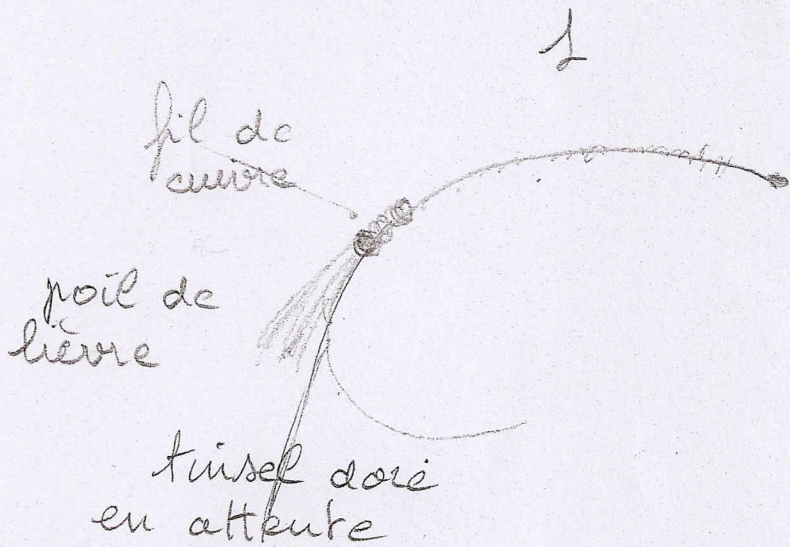 1
fil de
cuivre
poil de
lièvre
tinsel doré
en attente